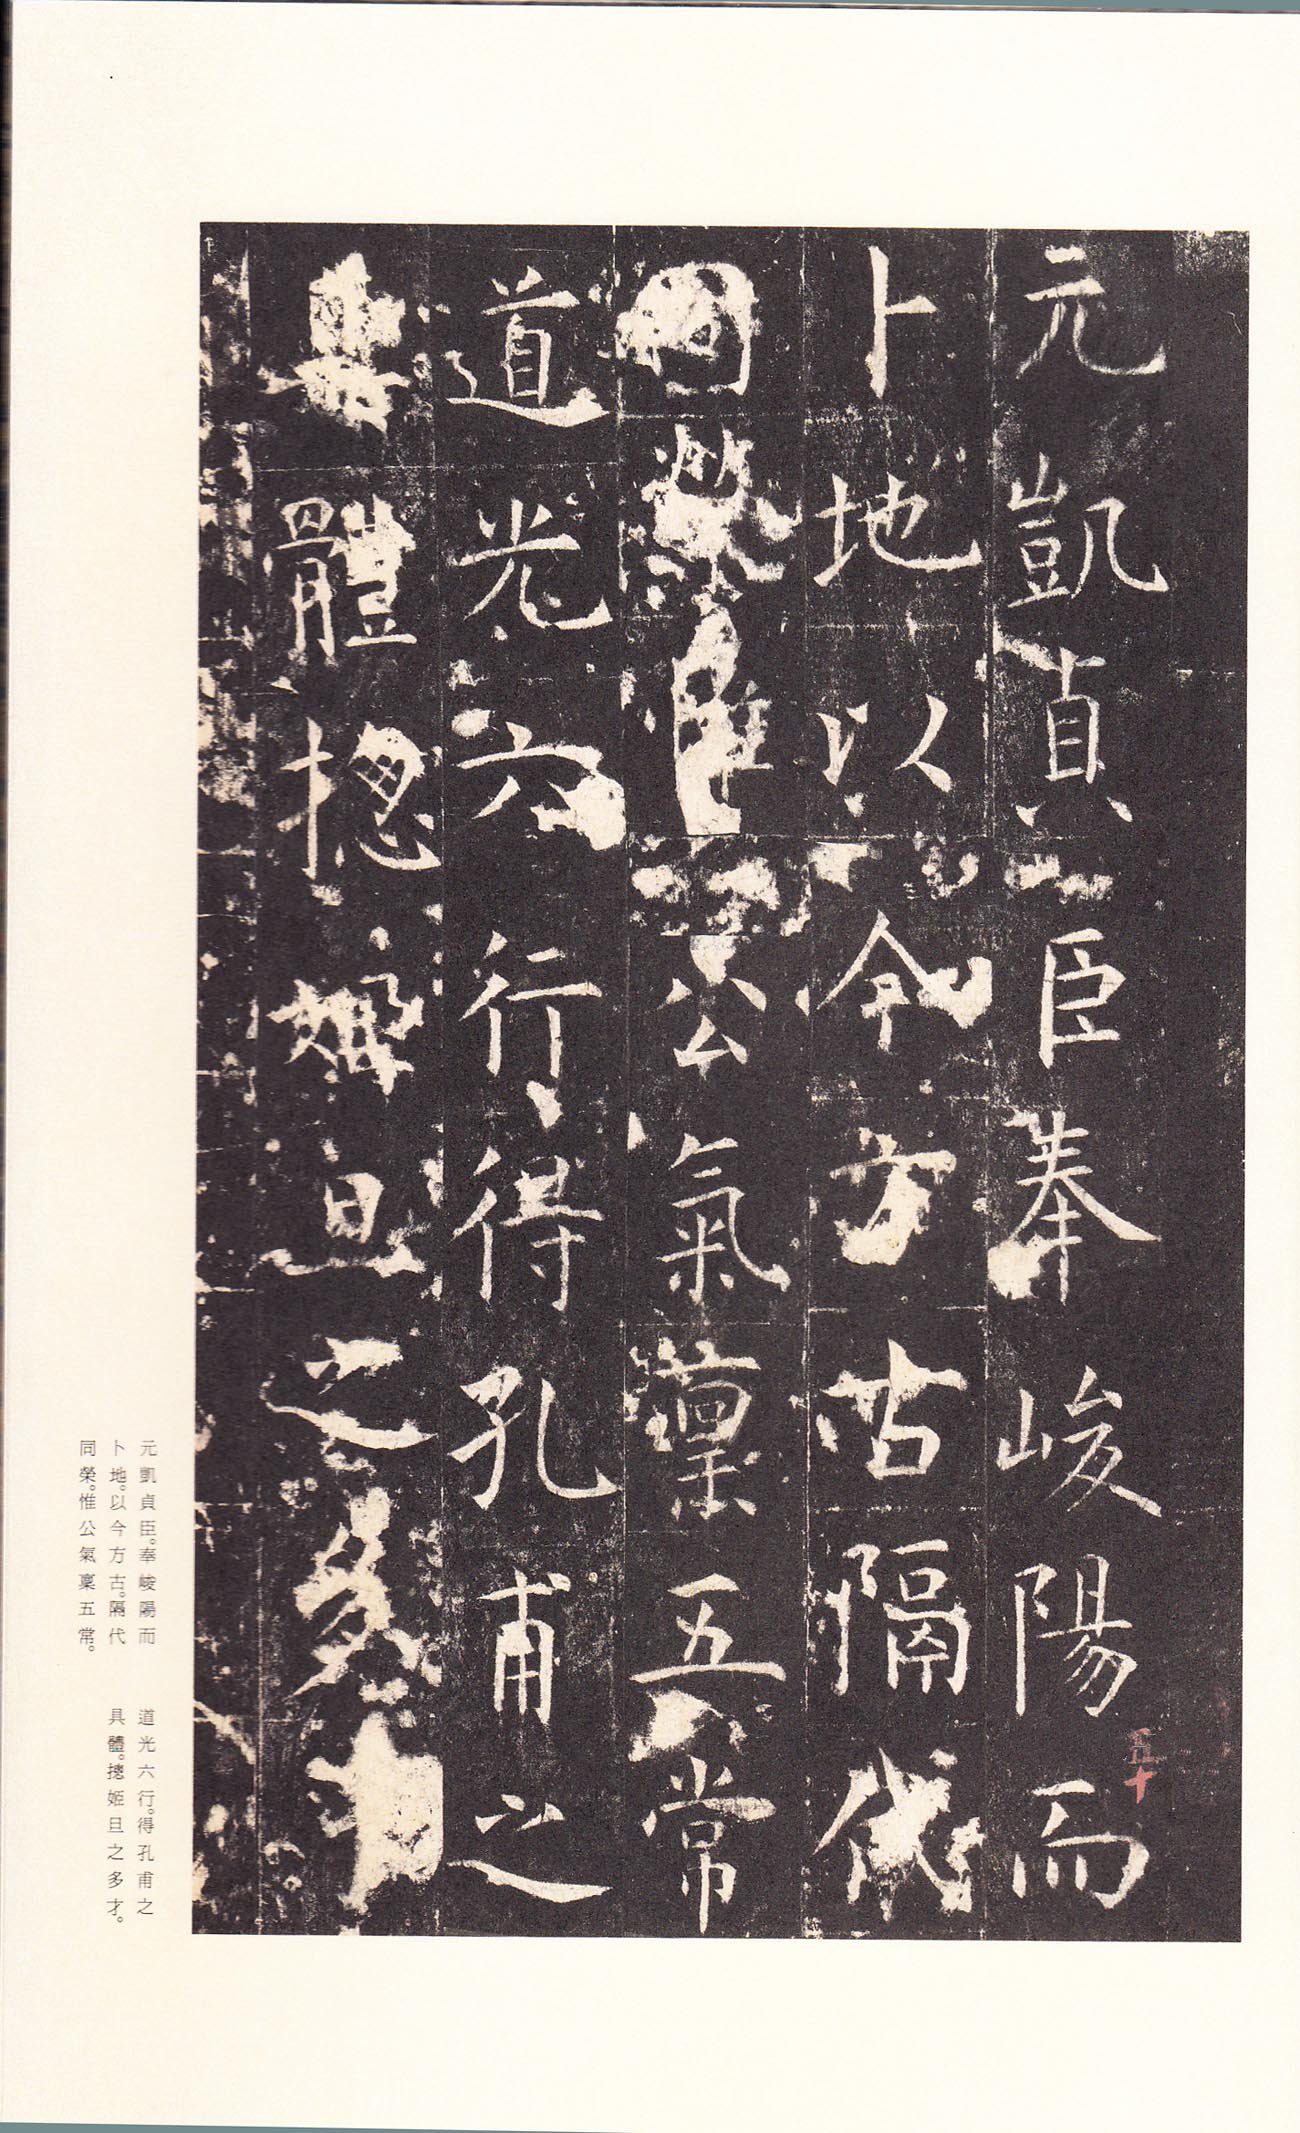 元凱貞臣奉峻陽而
卜地以今方古隔代
同榮惟公氣稟五常
道光六行得孔甫之
具體揔姬旦之多才
五十
元凱貞臣。奉峻陽而
卜地。以今方古。隔代
同榮。惟公氣稟五常。
道光六行。得孔甫之
具體。摠姬旦之多才。